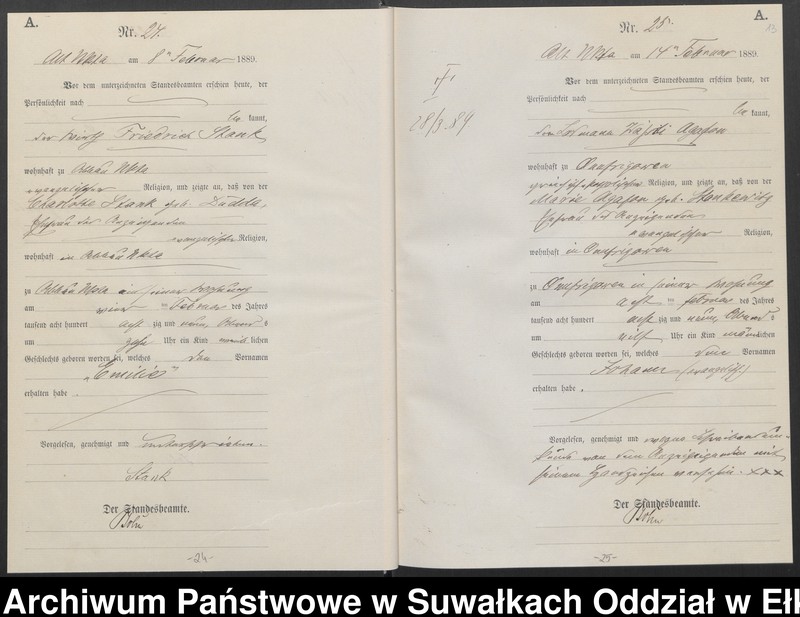 A.
Nr. 24.
Alt Ukta am 8ten Februar 1889.
Vor dem unterzeichneten Standesbeamten erschien heute, der
Persönlichkeit nach
be kannt,
der Wirth Friedrich Stank
wohnhaft zu Ukta
evangelischer Religion, und zeigte an, daß von der
Charlotte Stank geb.
Ehefrau des Anzeigenden
evangelischer Religion,
wohnhaft in Ukta
zu Ukta in seiner Wohnung
am Februar des Jahres
tausend acht hundert acht zig und neun, Abends
um Uhr ein Kind weib lichen
Geschlechts geboren worden sei, welches den Vornamen
„Emilie"
erhalten habe.
Vorgelesen, genehmigt und unterschrieben.
Stank
Der Standesbeamte.
Bohn
-24-
A.
13
Nr. 25.
Alt Ukta am 14ten Februar 1889.
Vor dem unterzeichneten Standesbeamten erschien heute, der
Persönlichkeit nach
be kannt,
der Agafon
wohnhaft zu Onufrigowen
Religion, und zeigte an, daß von der
Marie Agafon geb.
Ehefrau des Anzeigenden
evangelischer Religion,
wohnhaft in Onufrigowen
zu Onufrigowen in seiner Wohnung
am acht ten Februar des Jahres
tausend acht hundert acht zig und neun, Abends
um elf Uhr ein Kind männ lichen
Geschlechts geboren worden sei, welches den Vornamen
Johann (evangelisch)
erhalten habe.
Vorgelesen, genehmigt und wegen Schreibensun-
kunde von dem Anzeigenden mit
seinem Handzeichen versehen. xxx
Der Standesbeamte.
Bohn
-25-
28/3.84
Archiwum Państwowe w Suwałkach Oddział w Ełk